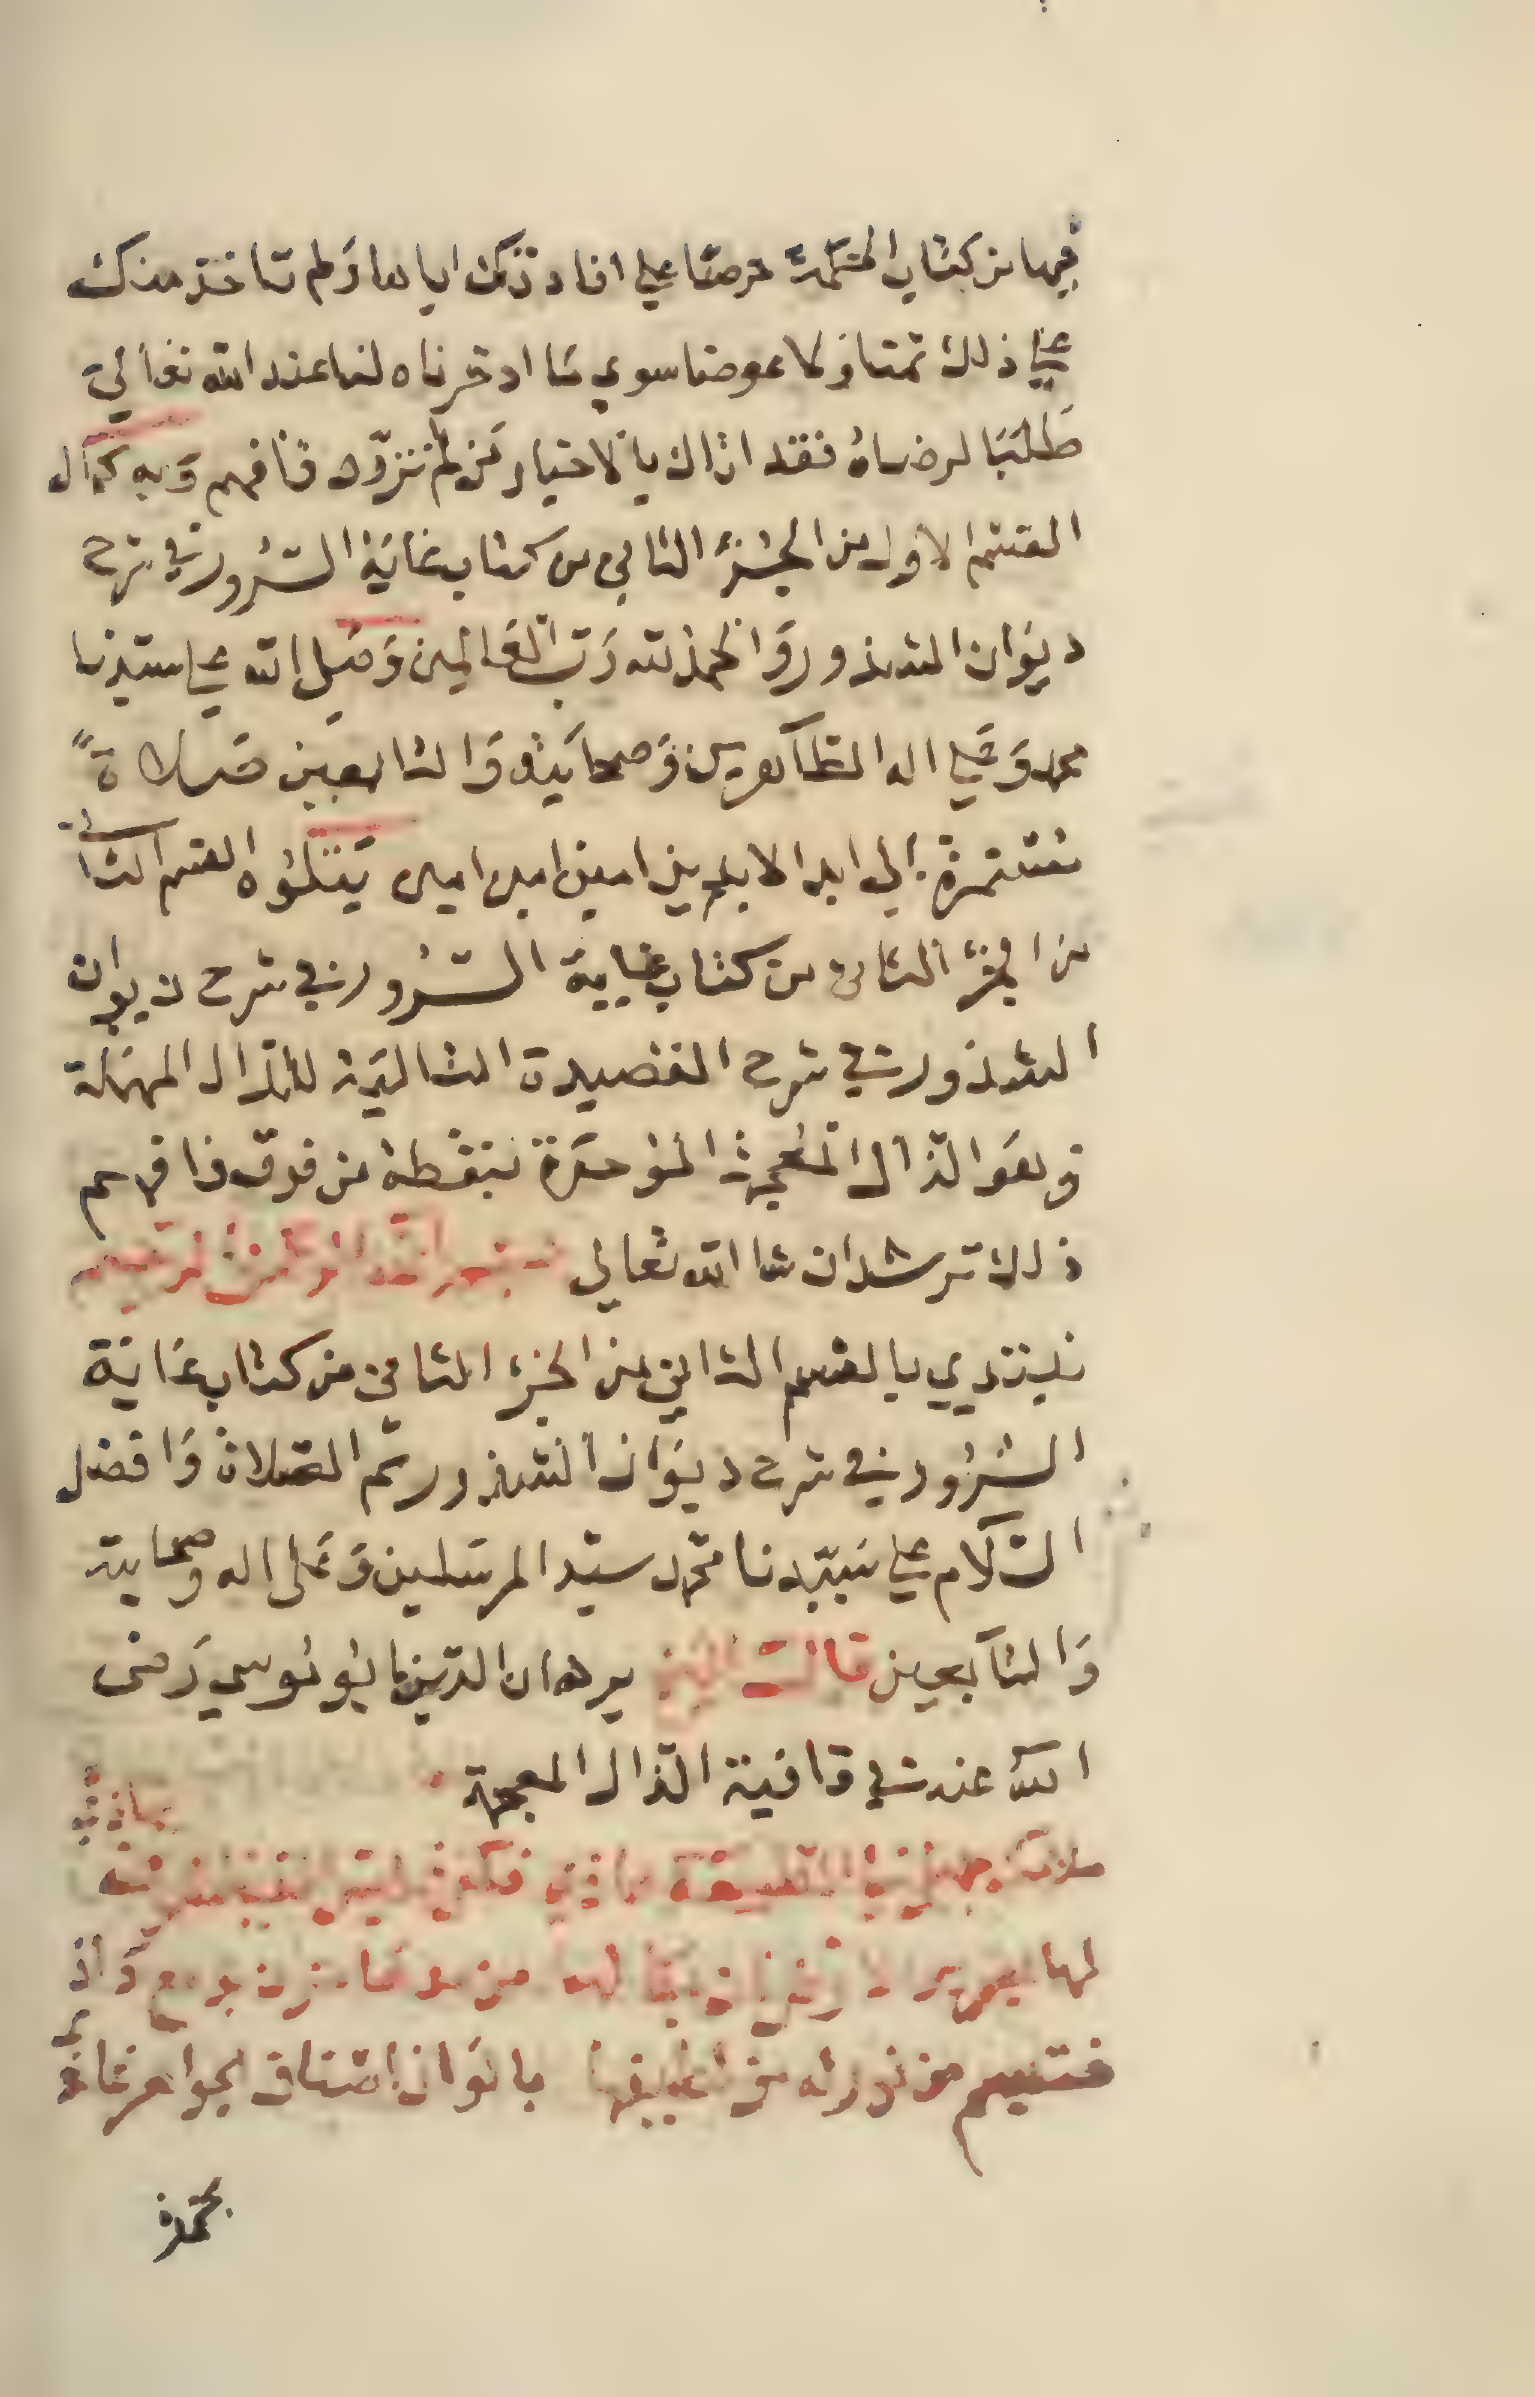 فيها من كتاب الحكمة حرصا علي افادتك اياها ولم تاخذ منك
علي ذلك ثمنا ولا عوضا سوي ما ادخرناه لنا عند الله تعالي
طلبا لرضاه فقد اتاك بالاخبار من لم تزود فافهم وبه كمال
القسم الاول من الجزء الثاني من كتاب غاية السرور في شرح
ديوان الشذور والحمد لله رب العالمين وصلي الله علي سيدنا
محمد وعلي اله الطاهرين وصحابته والتابعين صلاة
مستمرة الي ابد الابدين امين امين امين يتلوه القسم الثاني
من الجزء الثاني من كتاب غاية السرور في شرح ديوان
الشذور في شرح القصيدة التالية للدال المهملة
وهو الذال المعجمة الموحدة بنقطة من فوق فافهم
ذلك ترشد ان شا الله تعالي بسم الله الرحمن الرحيم
نبتدي بالقسم الثاني من الجزء الثاني من كتاب غاية
السرور في شرح ديوان الشذور ثم الصلاة وافضل
السلام علي سيدنا محمد سيد المرسلين وعلى اله وصحابته
والتابعين قال الشيخ برهان الدين ابو موسي رضى
الله عنه في قافية الذال المعجمة
لها من دمع
من بالوان اصناف الجواهر
بحمد